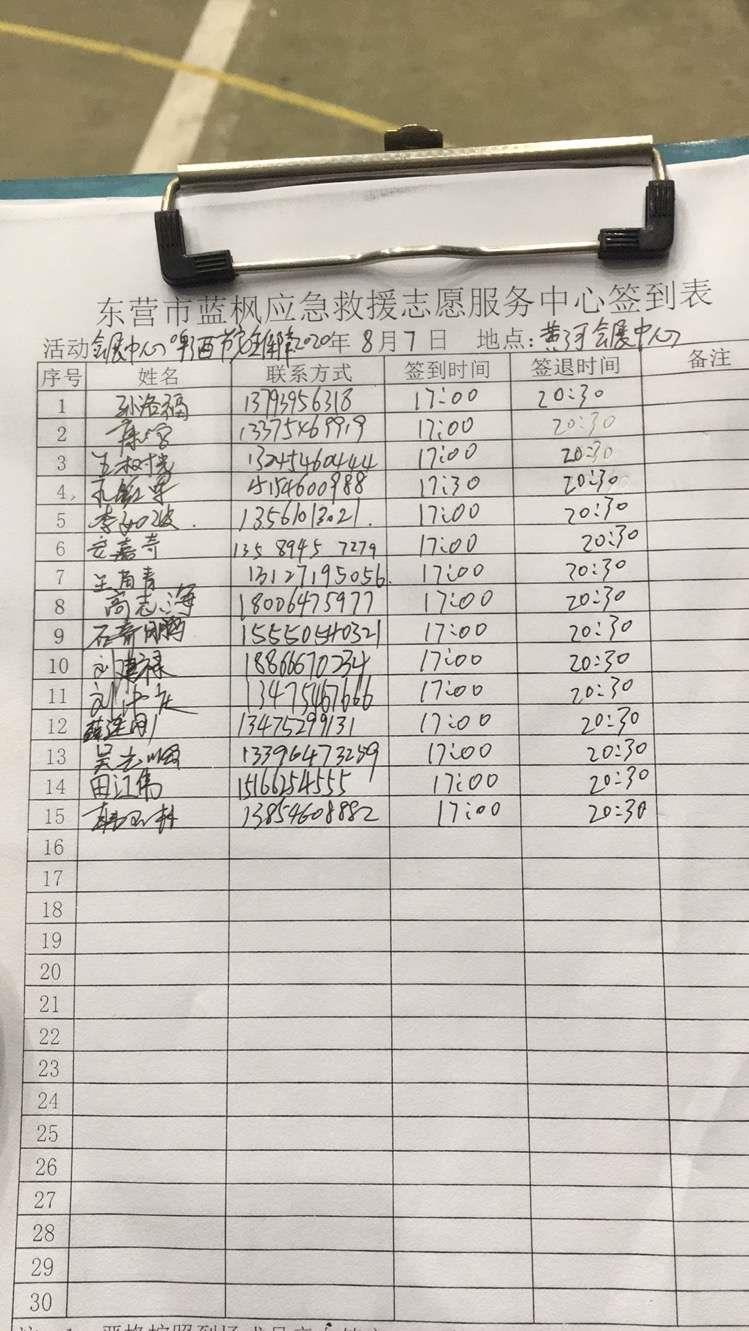 东营市蓝枫应急救援志愿服务中心签到表
活动 会展中心啤酒节安全保障 2020年 8月7日 地点:黄河会展中心
序号 姓名 联系方式 签到时间 签退时间 备注
1 孙洛福 13793956318 17:00 20:30
2 13375469919 17:00 20:30
3 13245460444 17:00 20:30
4 15154600988 17:30 20:30
5 17:00 20:30
6 嘉奇 135 8945 7279 17:00 20:30
7 13127195056 17:00 20:30
8 高志海 18006475977 17:00 20:30
9 石青 15550540321 17:00 20:30
10 刘建禄 18866670234 17:00 20:30
11 刘 13475467666 17:00 20:30
12 13475299131 17:00 20:30
13 吴志 13396473259 17:00 20:30
14 田江伟 15166254555 17:00 20:30
15 13854608882 17:00 20:30
16
17
18
19
20
21
22
23
24
25
26
27
28
29
30